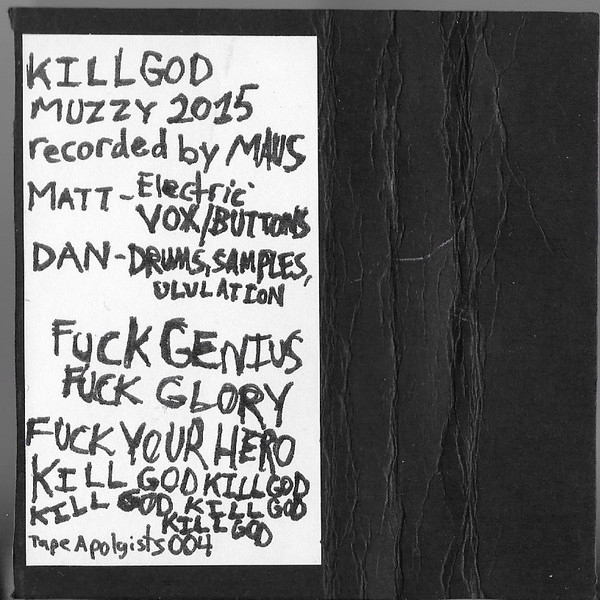 KILLGOD
MUZZY 2015
recorded by MAUS
MATT - Electric
VOX/BUTTONS
DAN - DRUMS, SAMPLES,
ULULATION
FUCK GENIUS
FUCK GLORY
FUCK YOUR HERO
KILL GOD KILL GOD
KILL GOD, KILL GOD
KILL GOD
Tape Apolgists 004